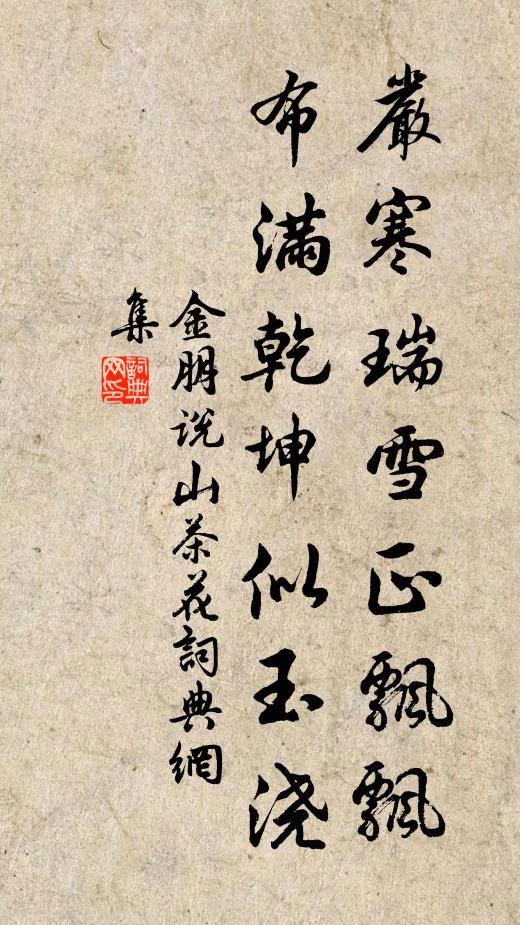 嚴寒瑞雪正飄飄
布滿乾坤似玉浇
金朋说山茶花詞典網
集
詞典
网印